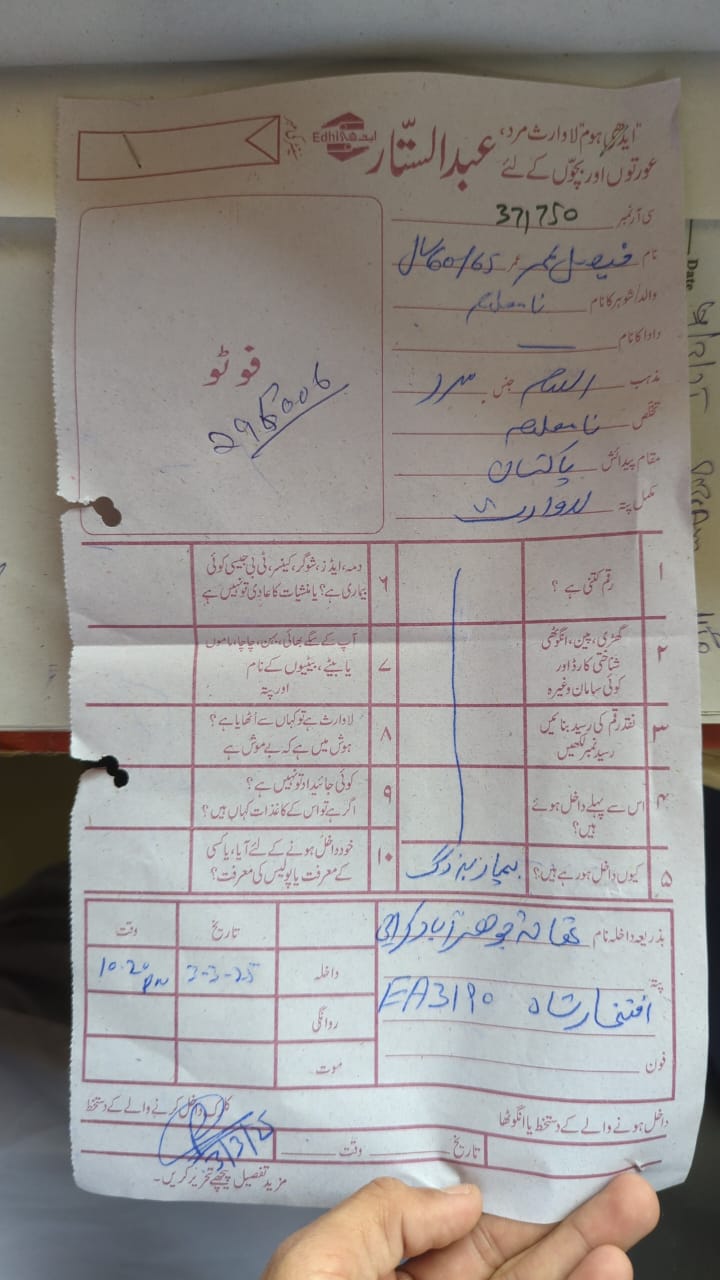 "ایدھی ہوم" لاوارث مرد،
عورتوں اور بچّوں کے لئے
عبدالستّار
Edhi ایدھی
سی آر نمبر 371750
نام فیصل عمر 60/65 سال
والد/شوہر کا نام نامعلوم
دادا کا نام —
مذہب اسلام جنس مرد
تخلص نامعلوم
مقام پیدائش پاکستان
مکمل پتہ لاوارث
فوٹو
۱ رقم کتنی ہے ؟
۲ گھڑی، پین، انگوٹھی
شناختی کارڈ اور
کوئی سامان وغیرہ
۳ نقد رقم کی رسید بنائیں
رسید نمبر لکھیں
۴ اس سے پہلے داخل ہوئے
ہیں؟
۵ کیوں داخل ہو رہے ہیں؟ بیمار بزرگ
۶ دمہ، ایڈز، شوگر، کینسر، ٹی بی جیسی کوئی
بیماری ہے؟ یا منشیات کا عادی تو نہیں ہے
۷ آپ کے سگے بھائی، بہن، چاچا، ماموں
یا بیٹے، بیٹیوں کے نام
اور پتہ
۸ لاوارث ہے تو کہاں سے اُٹھایا ہے؟
ہوش میں ہے کہ بے ہوش ہے
۹ کوئی جائیداد تو نہیں ہے؟
اگر ہے تو اس کے کاغذات کہاں ہیں؟
۱۰ خود داخل ہونے کے لئے آیا، یا کسی
کے معرفت یا پولیس کی معرفت؟
بذریعہ داخلہ نام تھانہ جوھرآباد کراچی
پتہ
افتخار شاہ EA3190
فون
تاریخ وقت
داخلہ 3-3-25 10:20 PM
روانگی
موت
داخل ہونے والے کے دستخط یا انگوٹھا
کلرک داخل کرنے والے کے دستخط
3/3/25
تاریخ وقت
مزید تفصیل پیچھے تحریر کریں۔
Date